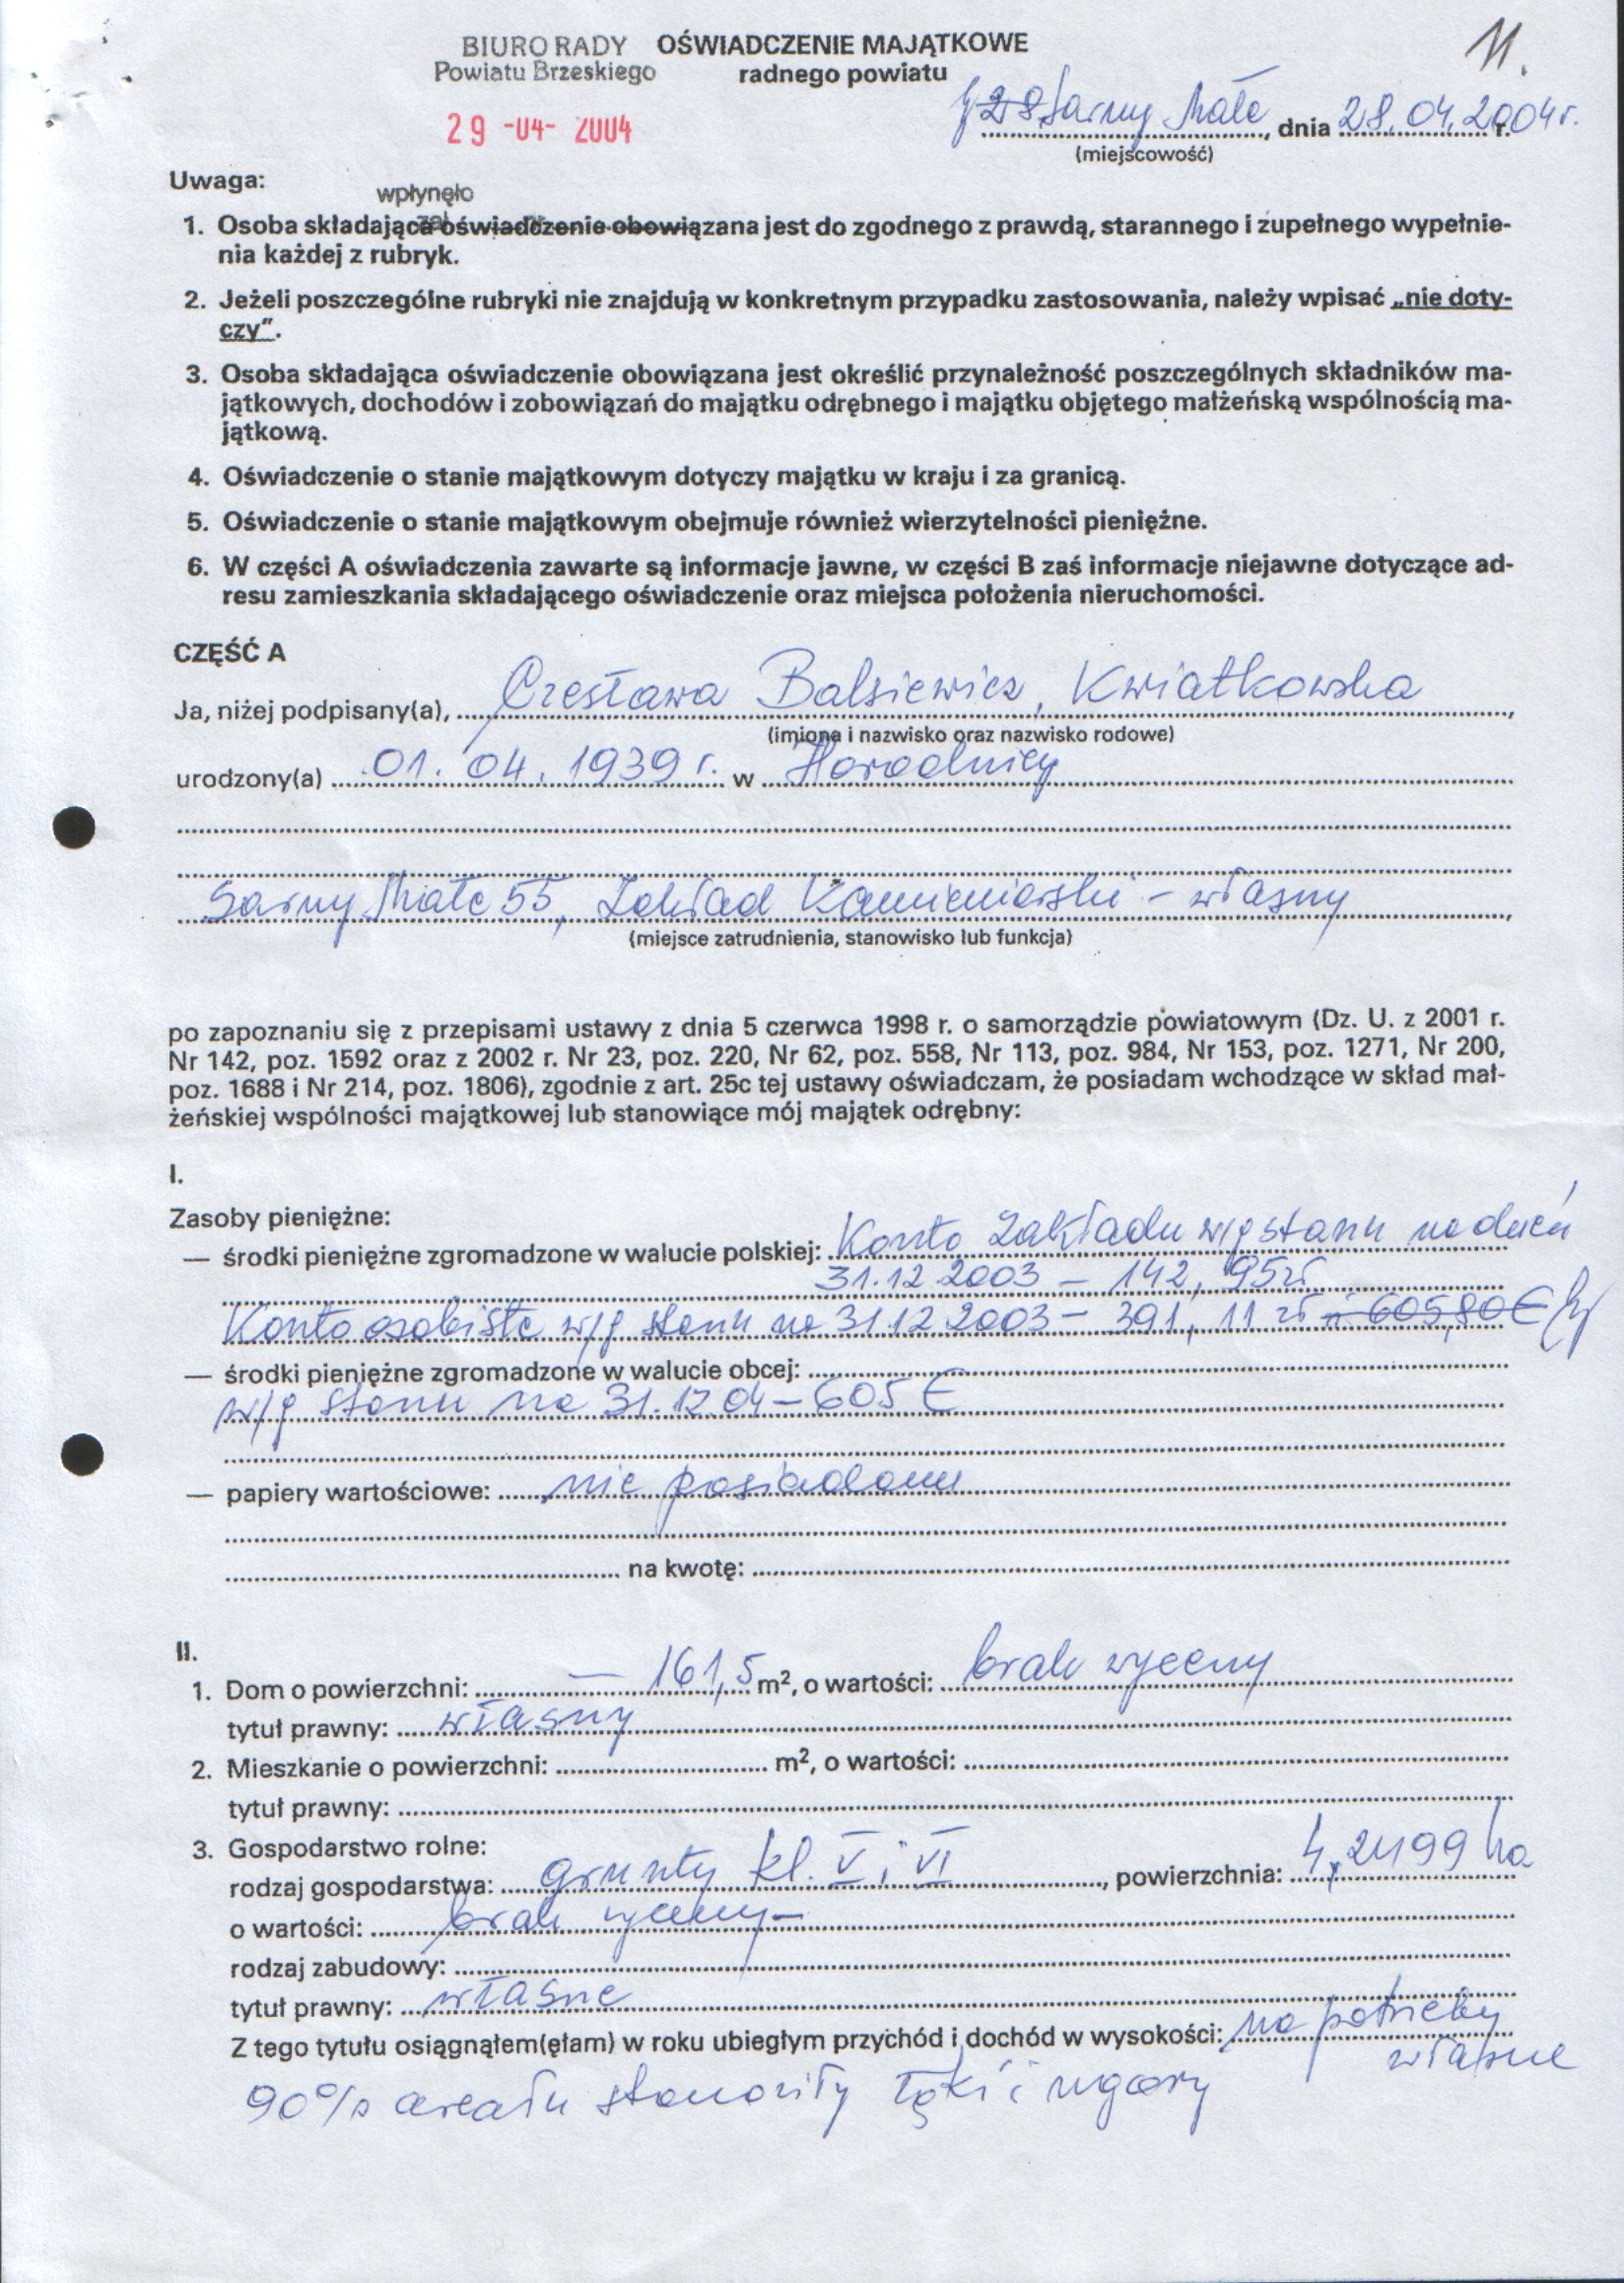 BIURO RADY OŚWIADCZENIE MAJĄTKOWE
Powiatu Brzeskiego radnego powiatu
11.
29 -04- 2004
Sarny Małe, dnia 28.04.2004 r.
(miejscowość)
Uwaga:
wpłynęło
1. Osoba składająca oświadczenie obowiązana jest do zgodnego z prawdą, starannego i zupełnego wypełnie-
nia każdej z rubryk.
2. Jeżeli poszczególne rubryki nie znajdują w konkretnym przypadku zastosowania, należy wpisać „nie doty-
czy”.
3. Osoba składająca oświadczenie obowiązana jest określić przynależność poszczególnych składników ma-
jątkowych, dochodów i zobowiązań do majątku odrębnego i majątku objętego małżeńską wspólnością ma-
jątkową.
4. Oświadczenie o stanie majątkowym dotyczy majątku w kraju i za granicą.
5. Oświadczenie o stanie majątkowym obejmuje również wierzytelności pieniężne.
6. W części A oświadczenia zawarte są informacje jawne, w części B zaś informacje niejawne dotyczące ad-
resu zamieszkania składającego oświadczenie oraz miejsca położenia nieruchomości.
CZĘŚĆ A
Ja, niżej podpisany(a), Czesława Balsiewicz, Kwiatkowska,
(imiona i nazwisko oraz nazwisko rodowe)
urodzony(a) 01.04.1939 r. w Horodnicy
Sarny Małe 55, Zakład Kamieniarski - własny,
(miejsce zatrudnienia, stanowisko lub funkcja)
po zapoznaniu się z przepisami ustawy z dnia 5 czerwca 1998 r. o samorządzie powiatowym (Dz. U. z 2001 r.
Nr 142, poz. 1592 oraz z 2002 r. Nr 23, poz. 220, Nr 62, poz. 558, Nr 113, poz. 984, Nr 153, poz. 1271, Nr 200,
poz. 1688 i Nr 214, poz. 1806), zgodnie z art. 25c tej ustawy oświadczam, że posiadam wchodzące w skład mał-
żeńskiej wspólności majątkowej lub stanowiące mój majątek odrębny:
I.
Zasoby pieniężne:
— środki pieniężne zgromadzone w walucie polskiej: Konto Zakładu w/g stanu na dzień
31.12.2003 - 142,95 zł
Konto osobiste w/g stanu na 31.12.2003 - 391,11 zł i 605,80 €
— środki pieniężne zgromadzone w walucie obcej:
w/g stanu na 31.12.04 - 605 €
— papiery wartościowe: nie posiadam
na kwotę:
II.
1. Dom o powierzchni: — 161,5 m², o wartości: brak wyceny
tytuł prawny: własny
2. Mieszkanie o powierzchni: m², o wartości:
tytuł prawny:
3. Gospodarstwo rolne:
rodzaj gospodarstwa: grunty kl. V i VI, powierzchnia: 4,2499 ha
o wartości: brak wyceny -
rodzaj zabudowy:
tytuł prawny: własne
Z tego tytułu osiągnąłem(ęłam) w roku ubiegłym przychód i dochód w wysokości: na potrzeby
własne
90% areału stanowiły łąki i ugory